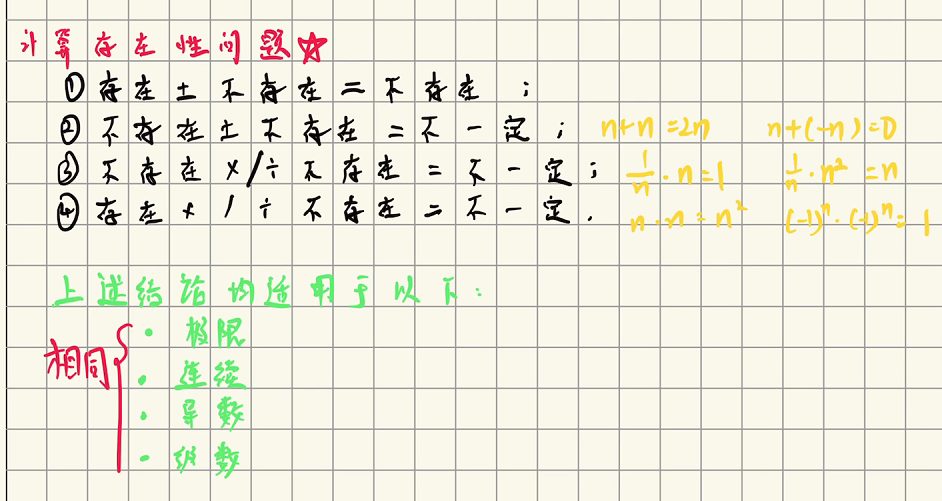 计算存在性问题☆
① 存在 ± 不存在 = 不存在 ;
② 不存在 ± 不存在 = 不一定 ; n+n=2n n+(-n)=0
③ 不存在 ×/÷ 不存在 = 不一定 ; 1/n·n=1 1/n·n²=n
④ 存在 ×/÷ 不存在 = 不一定. n·n=n² (-1)ⁿ·(-1)ⁿ=1
上述结论均适用于以下:
相同
· 极限
· 连续
· 导数
· 级数